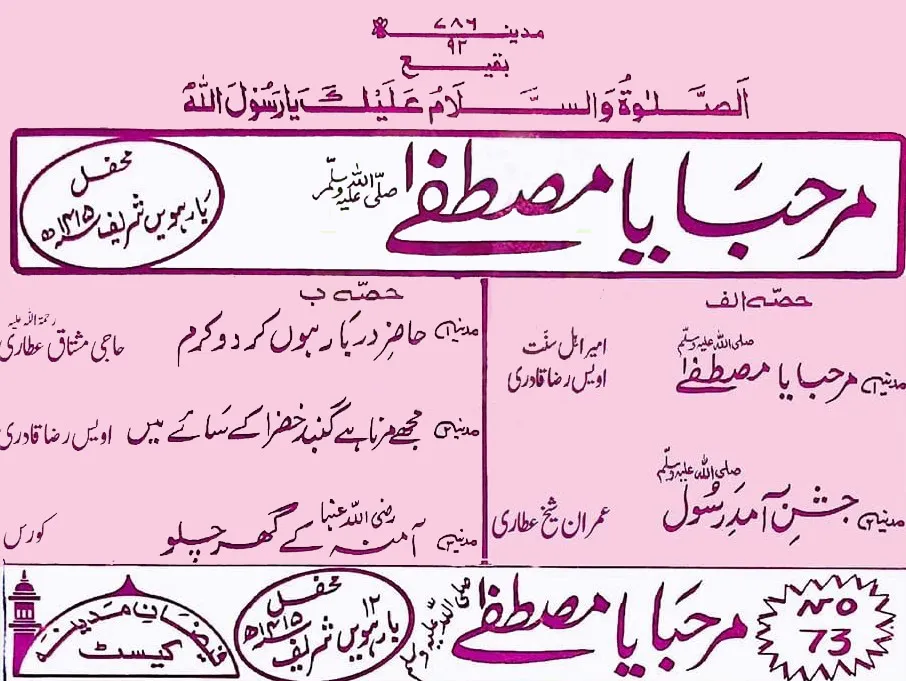 ۷۸۶
مدینہ
۹۲
بقیع
اَلصَّلٰوةُ وَالسَّلَامُ عَلَیْكَ یَا رَسُوْلَ اللّٰهِ
مرحبا یا مصطفےٰ صلی اللہ علیہ وسلم
محفل
بارہویں شریف
۱۴۱۵ھ
حصّہ الف
مدینہ۱ مرحبا یا مصطفےٰ صلی اللہ علیہ وسلم امیر اہل سنّت
اویس رضا قادری
مدینہ۲ جشنِ آمدِ رسُول صلی اللہ علیہ وسلم عمران شیخ عطاری
حصّہ ب
مدینہ۱ حاضرِ دربار ہوں کر دو کرم حاجی مشتاق عطاری رحمۃ اللہ علیہ
مدینہ۲ مجھے مرنا ہے گنبدِ خضرا کے سَائے میں اویس رضا قادری
مدینہ۳ آمنہ رضی اللہ عنہا کے گھر چلو کورس
No
73
مرحبا یا مصطفےٰ صلی اللہ علیہ وسلم
محفل
۱۲
بارہویں شریف
۱۴۱۵ھ
فیضانِ مدینہ
کیسٹ